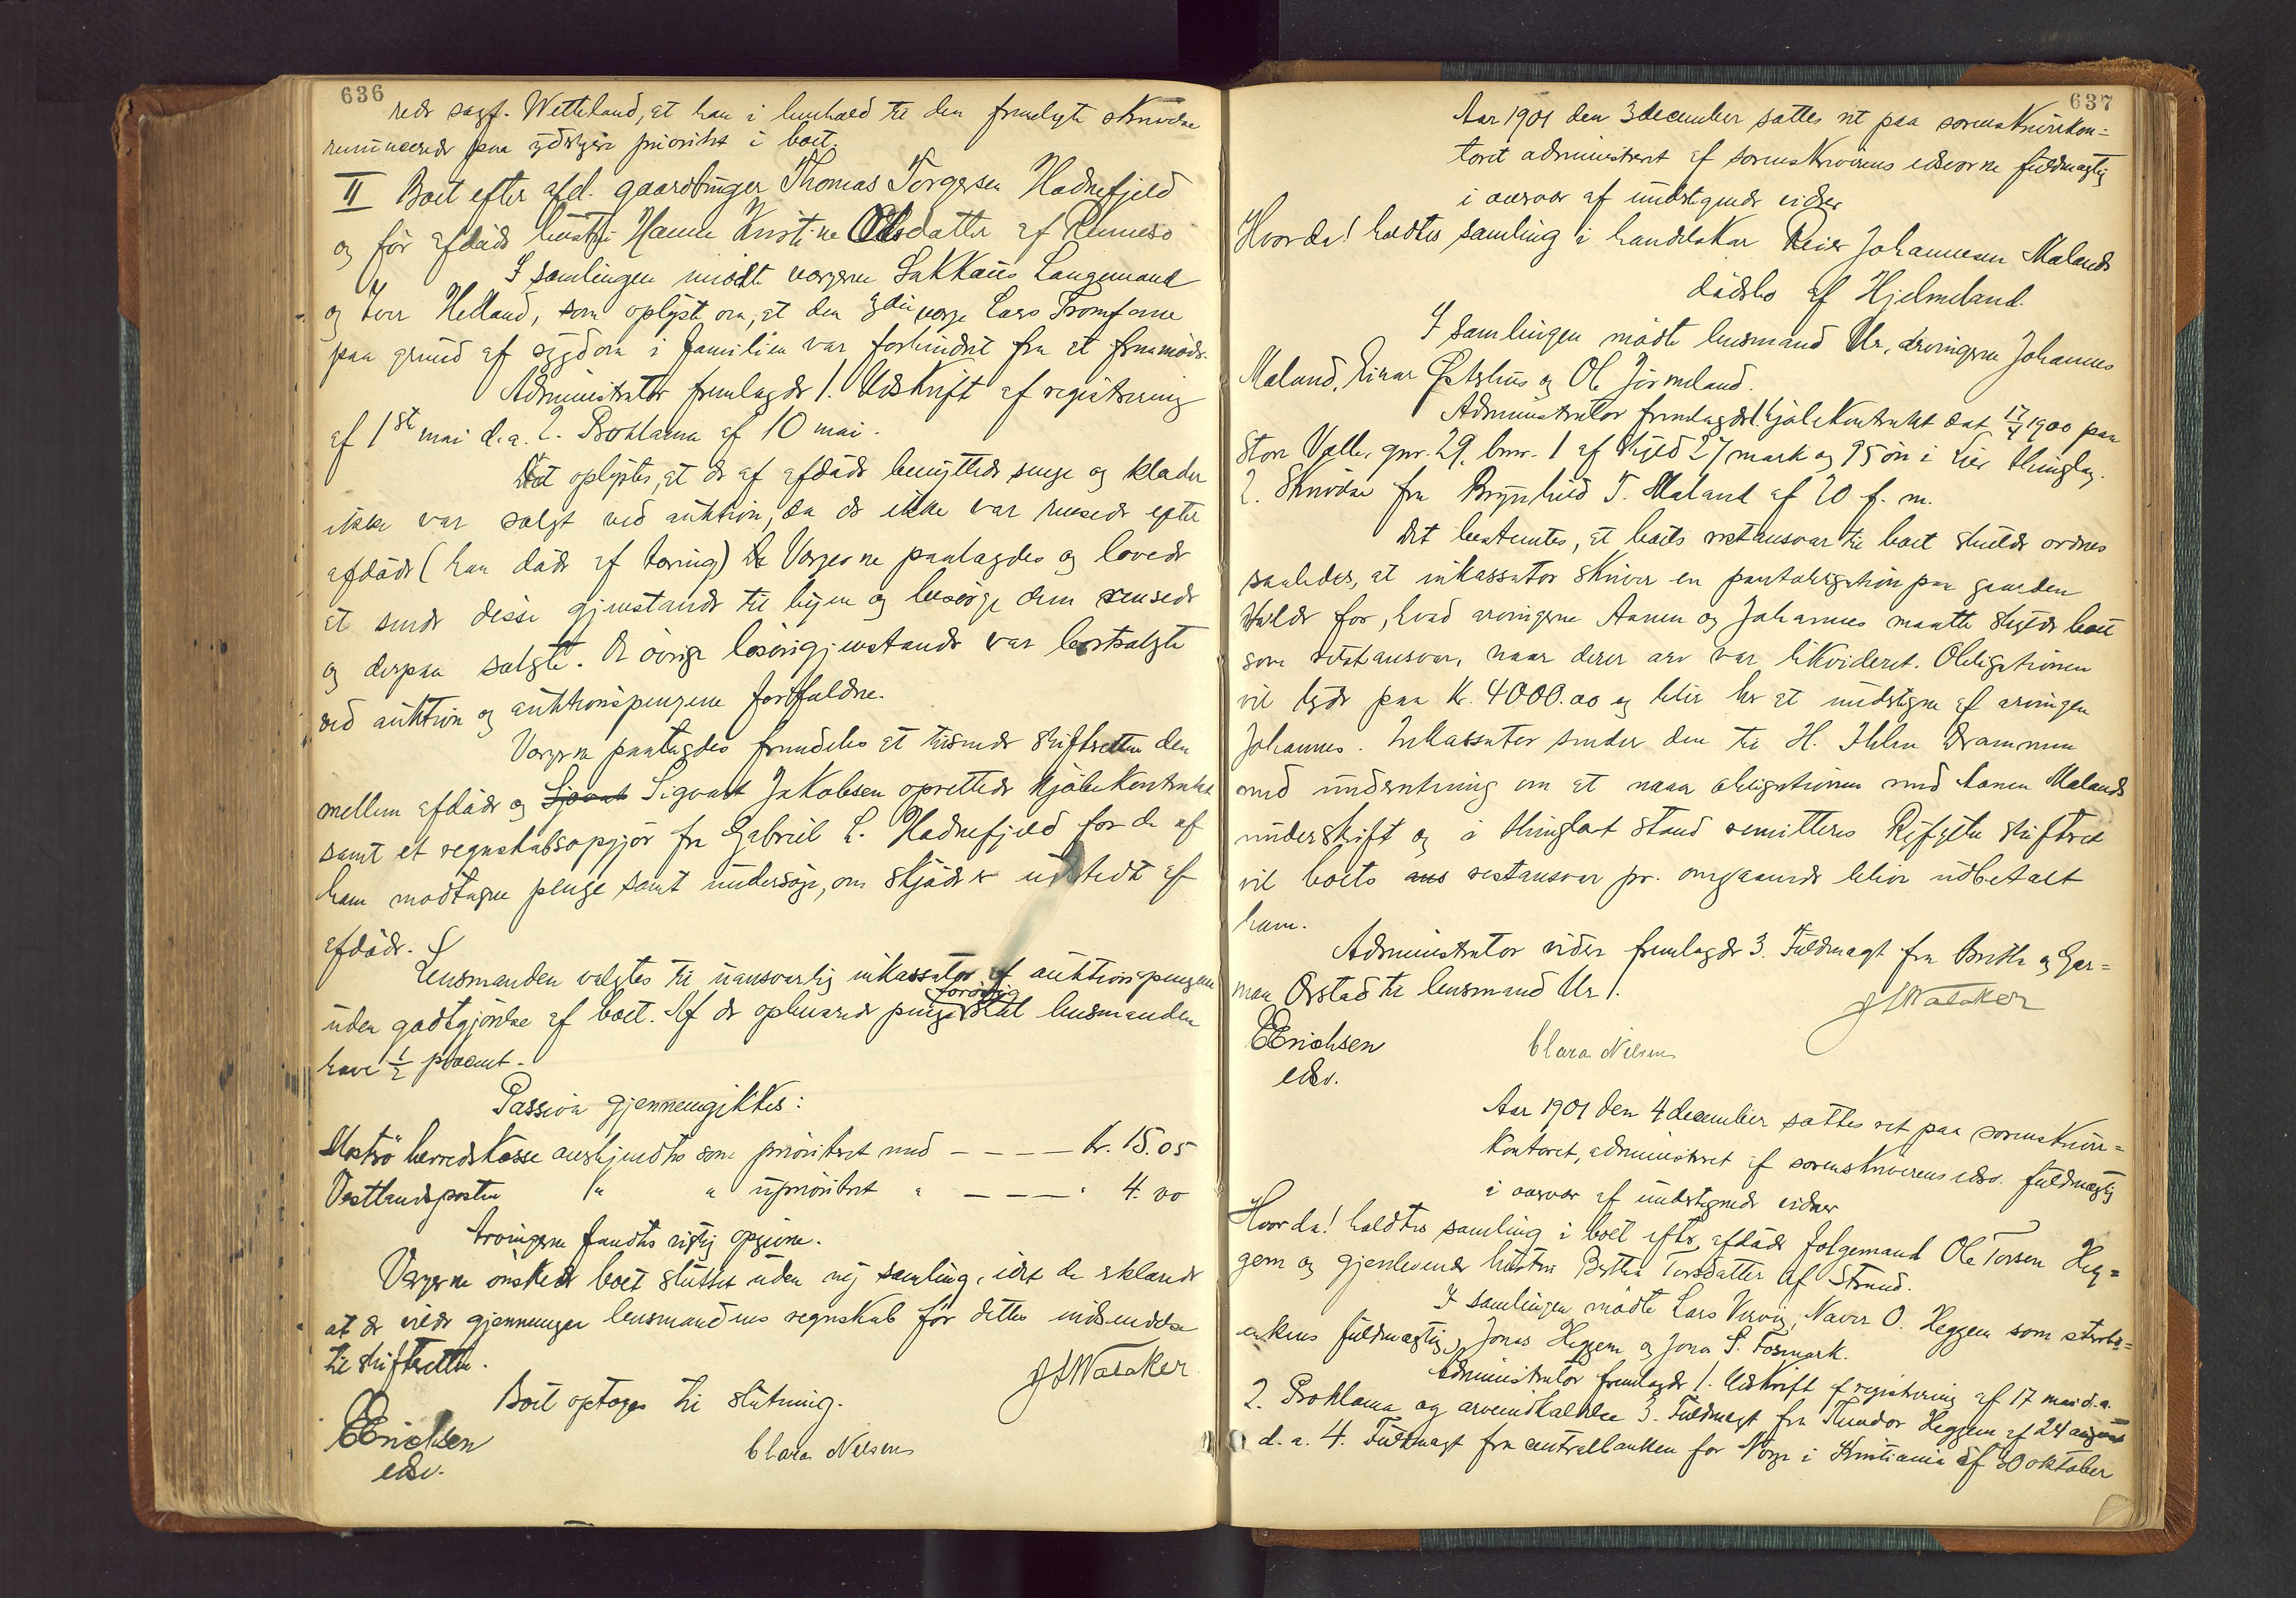 636
rede sagf. Wetteland, at han i henhold til den fremlagte skrivelse
renuncerede paa yderligere prioritet i boet.
II Boet efter afd. gaardbruger Thomas Torgersen Hadnefjeld
og før afdøde hustru Hanne Kristine Olsdatter af Rennesø
I samlingen mødte vergerne Sakkaus Langemand
og Iver Helland, som oplyste om, at den 3die verge Lars
paa grund af sygdom i familien var forhindret fra at fremmøde.
Administrator fremlagde 1. Udskrift af registrering
af 1ste mai d.a. 2. Proklama af 10 mai.
Det oplystes, at de af afdøde benyttede senge og klæder
ikke var solgt ved auktion, da de ikke var rensede efter
afdøde (han døde af tæring) Vergerne paatagdes og lovede
at sende disse gjenstande til byen og besørge dem rensede
og derpaa solgte. De øvrige løsøregjenstande var bortsolgte
ved auktion og auktionspengene forfaldne.
Vergerne paatagdes fremdeles at tilsende skifteretten den
mellem afdøde og Sigvart Jakobsen oprettede kjøbekontrakt
samt et regnskabsopgjør fra Gabriel L. Hadnefjeld for de af
ham modtagne penge samt undersøge, om skjøde er udstedt af
afdøde.
Lensmanden valgtes til uansvarlig inkassator af auktionspengene
uden godtgjørelse af boet. Af de opbevarede penge forøvrig skal lensmanden
have 1/2 procent.
Passiva gjennemgikkes:
Mosterø herredskasse anerkjendtes som prioriteret med – – – – kr. 15.05
Vestlandsposten " " uprioritert " – – – – " 4.00
Arvingerne fandtes rigtig opgivne.
Vergerne ønskede boet sluttet uden ny samling, idet de erklærede
at de vilde gjennemgaa lensmandens regnskab før dettes indsendelse
til skifteretten.
Boet optages til slutning.
J S Walaker
E Erichsen
edsv.
Clara Nielsen
637
Aar 1901 den 3 december sattes ret paa sorenskriverkon=
toret administreret af sorenskriverens edsvorne fuldmægtig
i overvær af undertegnede vidner
Hvorda! holdtes samling i handelskar Reier Johannesen Malands
dødsbo af Hjelmeland.
I samlingen mødte lensmand Ur, arvingerne Johannes
Maland, Einar Østerhus og Ole Jørmeland.
Administrator fremlagde 1. Kjøbekontrakt dat 17/4 1900 paa
Store Valle, gnr. 29, bnr. 1 af skyld 27 mark og 95 øre i Lier thinglag.
2. Skrivelse fra Brynhild T. Maland af 20 f. m.
Det bestemtes, at boets restansvar til boet skulde ordnes
saaledes, at inkassator skriver en pantobligation paa gaarden
Valde for, hvad arvingerne Aanen og Johannes maatte skylde boet
som restansvar, naar deres arv var likvideret. Obligationen
vil lyde paa Kr. 4000.00 og blir her at undertegne af arvingen
Johannes. Inkassator sender den til H. Ihlen Drammen
med undretning om at naar obligationen med Aanen Malands
underskrift og i thinglæst stand remitteres Ryfylke skifteret
vil boets restansvar pr. omgaaende blive udbetalt
ham.
Administrator videre fremlagde 3. Fuldmagt fra Brithe og Ger=
man Østad til lensmand Ur.
J S Walaker
E Erichsen
edsv.
Clara Nielsen
Aar 1901 den 4 december sattes ret paa sorenskriver=
kontoret, administreret af sorenskriverens edsv. fuldmægtig
i overvær af undertegnede vidner
Hvorda! holdtes samling i boet efter afdøde folgemand Ole Torsen Heg=
gem og gjenlevende hustru Berthe Torsdatter af Strand.
I samlingen mødte Lars Vervig, Naver O. Heggem som sterbo=
enkens fuldmægtig, Jonas Heggem og Jonas S. Fosmark.
Administrator fremlagde 1. Udskrift af registrering af 17 mai d.a.
2. Proklama og arveindkaldelse 3. Fuldmagt fra Theodor Heggem af 24 august
d. a. 4. Fuldmagt fra centralbanken for Norge i Kristiania af 30 oktober